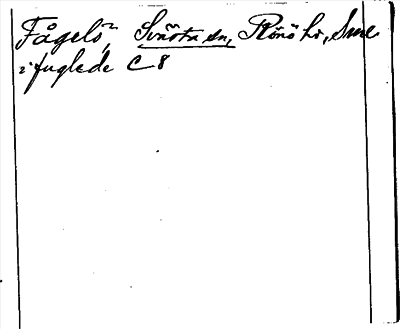 Fågelö, Svärta sn, Rönö hd, Sml
i fuglede C 8